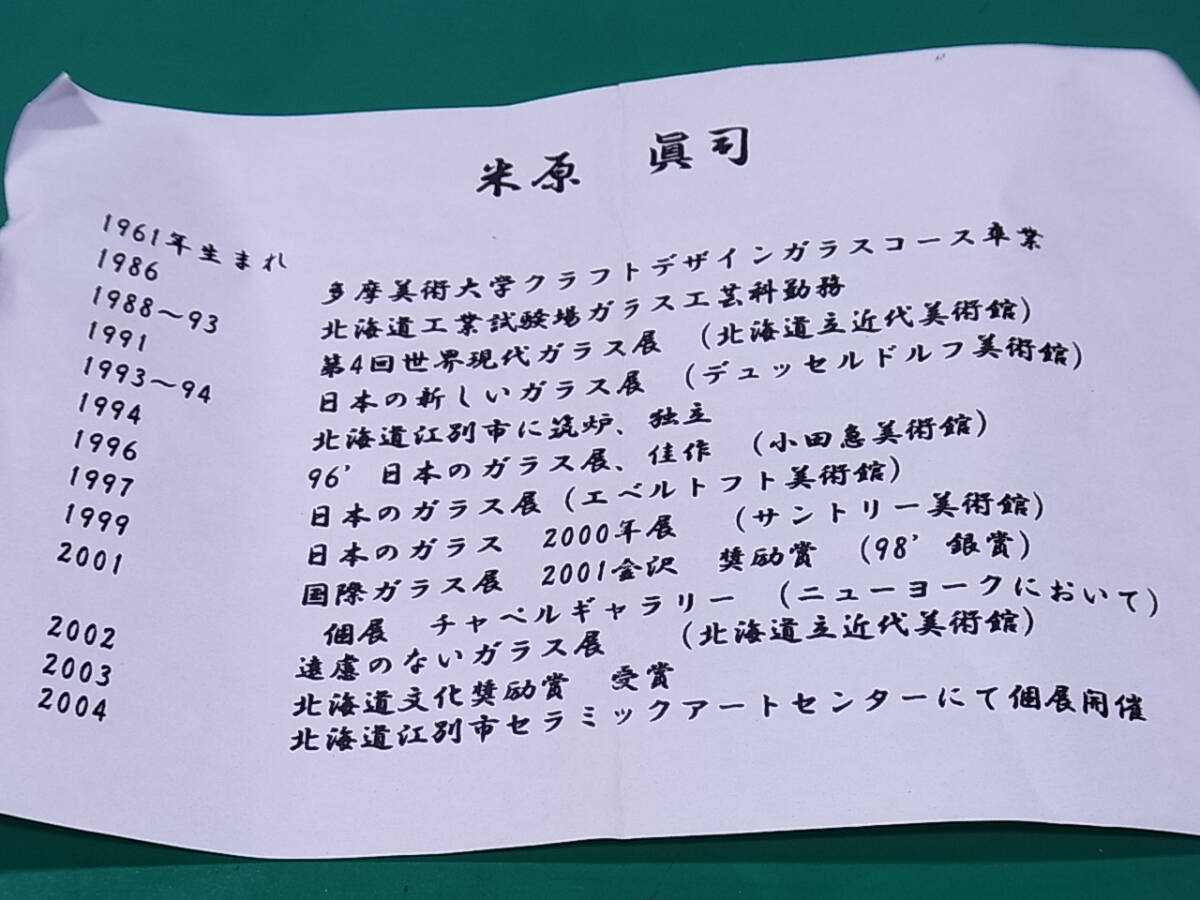 米原 眞司
1961年生まれ
1986 多摩美術大学クラフトデザインガラスコース卒業
1988～93 北海道工業試験場ガラス工芸科勤務
1991 第4回世界現代ガラス展 (北海道立近代美術館)
1993～94 日本の新しいガラス展 (デュッセルドルフ美術館)
1994 北海道江別市に筑炉、独立
1996 96’日本のガラス展、佳作 (小田急美術館)
1997 日本のガラス展(エベルトフト美術館)
1999 日本のガラス 2000年展 (サントリー美術館)
2001 国際ガラス展 2001金沢 奨励賞 (98’銀賞)
個展 チャペルギャラリー (ニューヨークにおいて)
2002 遠慮のないガラス展 (北海道立近代美術館)
2003 北海道文化奨励賞 受賞
2004 北海道江別市セラミックアートセンターにて個展開催